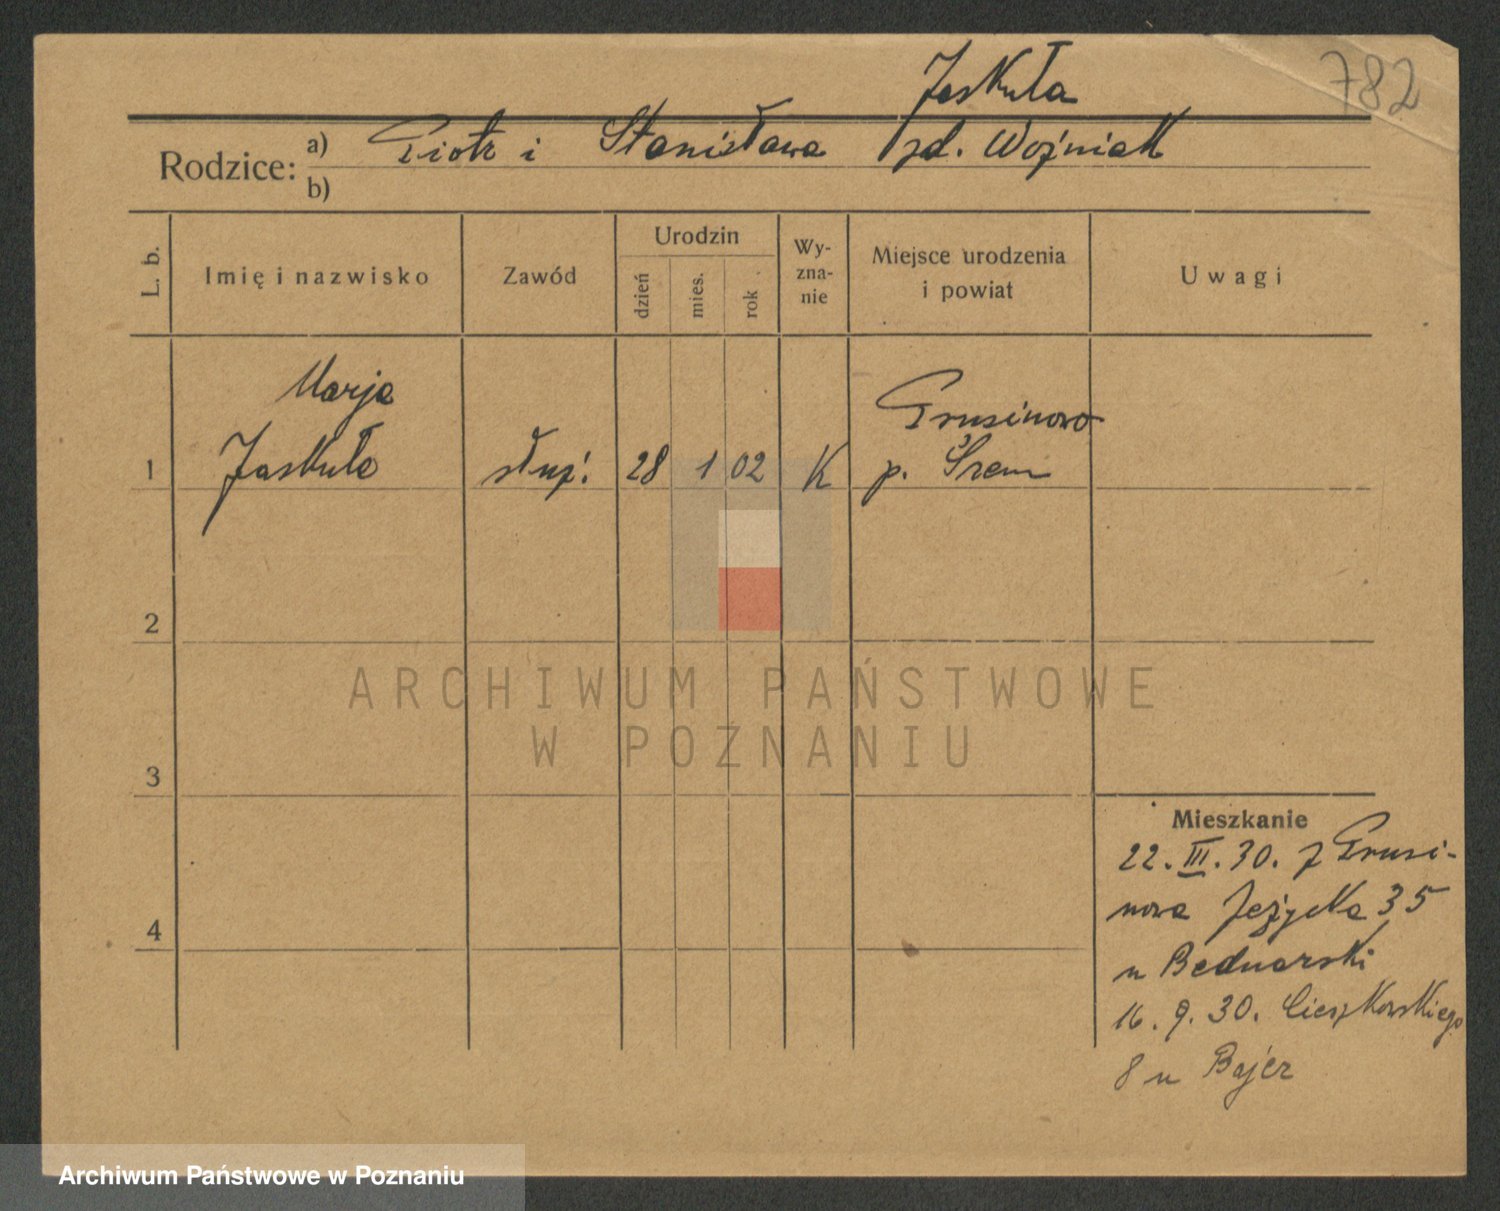 782
Jaskuła
Rodzice: a) Piotr i Stanisława zd. Woźniak
b)
L. b. Imię i nazwisko Zawód Urodzin dzień mies. rok Wy-zna-nie Miejsce urodzenia i powiat Uwagi
Marja Grusinowo
1 Jaskuła służ. 28 1 02 K p. Śrem
2
ARCHIWUM PAŃSTWOWE
W POZNANIU
3
4
Mieszkanie
22. III. 30. z Grusi-
nowa Jeżycka 35
u Bednarski
16. 9. 30. Cieszkowskiego
8 u Bajer
Archiwum Państwowe w Poznaniu